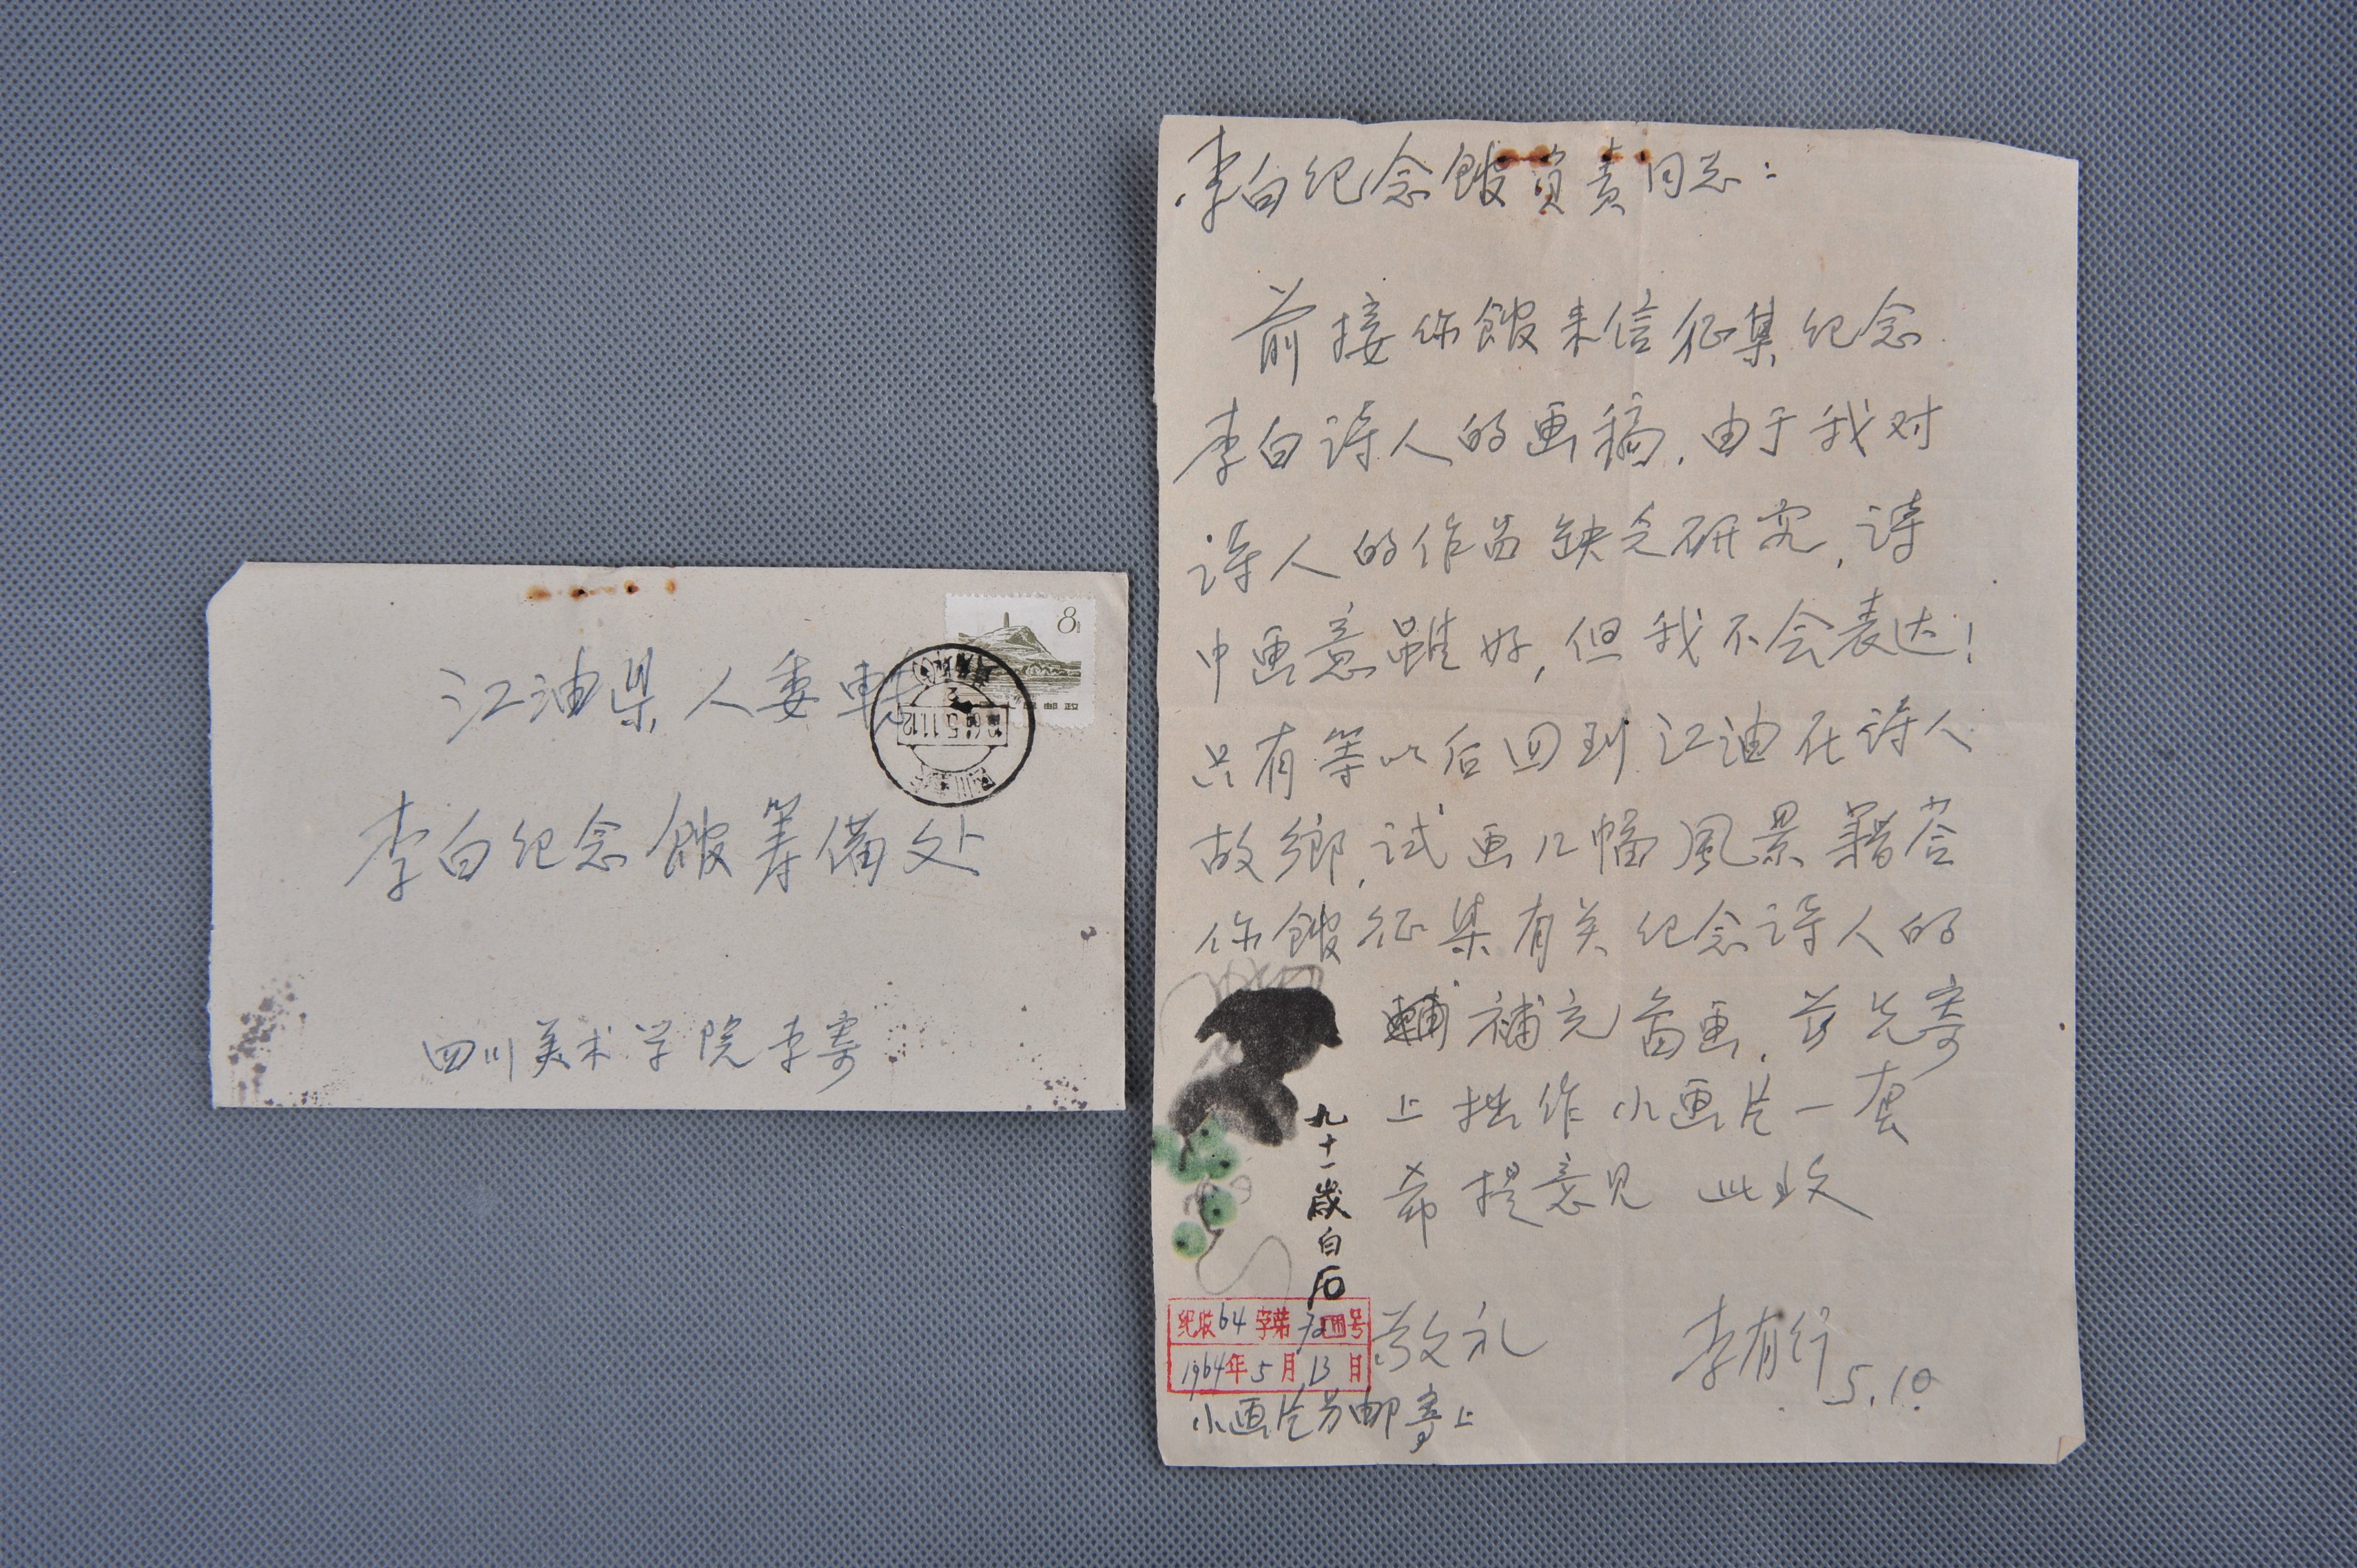 江油县人委转
李白纪念馆筹备处
四川美术学院李寄
8
邮政
64.5.11.12
李白纪念馆負責同志:
前接你馆来信征集纪念
李白诗人的画稿,由于我对
诗人的作品缺乏研究,诗
中画意虽好,但我不会表达!
只有等以后回到江油在诗人
故鄉,试画几幅風景藉答
你馆征集有关纪念诗人的
補充畲画,兹先寄
上拙作小画片一套
希提意见 此致
敬礼
李有行
5.10
小画片另邮寄上
九十一岁白石
纪收64字第号
1964年5月13日